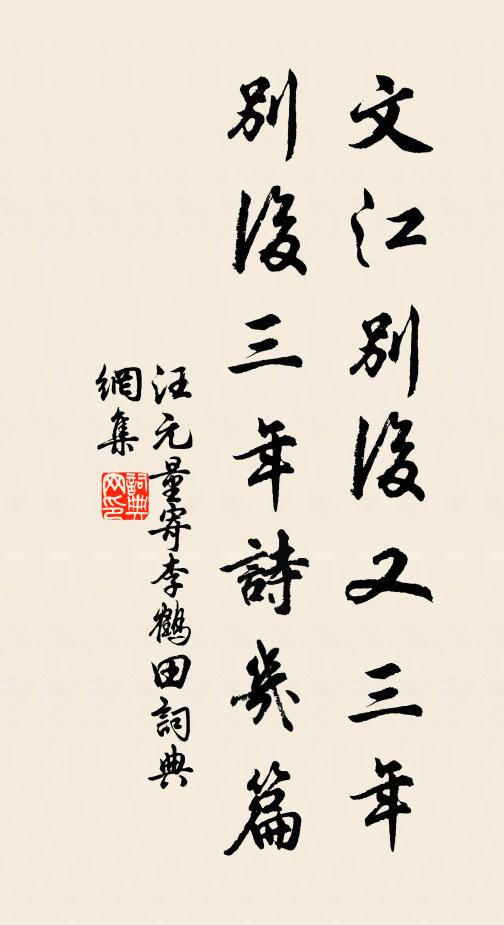 文江別後又三年
別後三年詩幾篇
汪元量寄李鶴田詞典
網集
詞典
网印